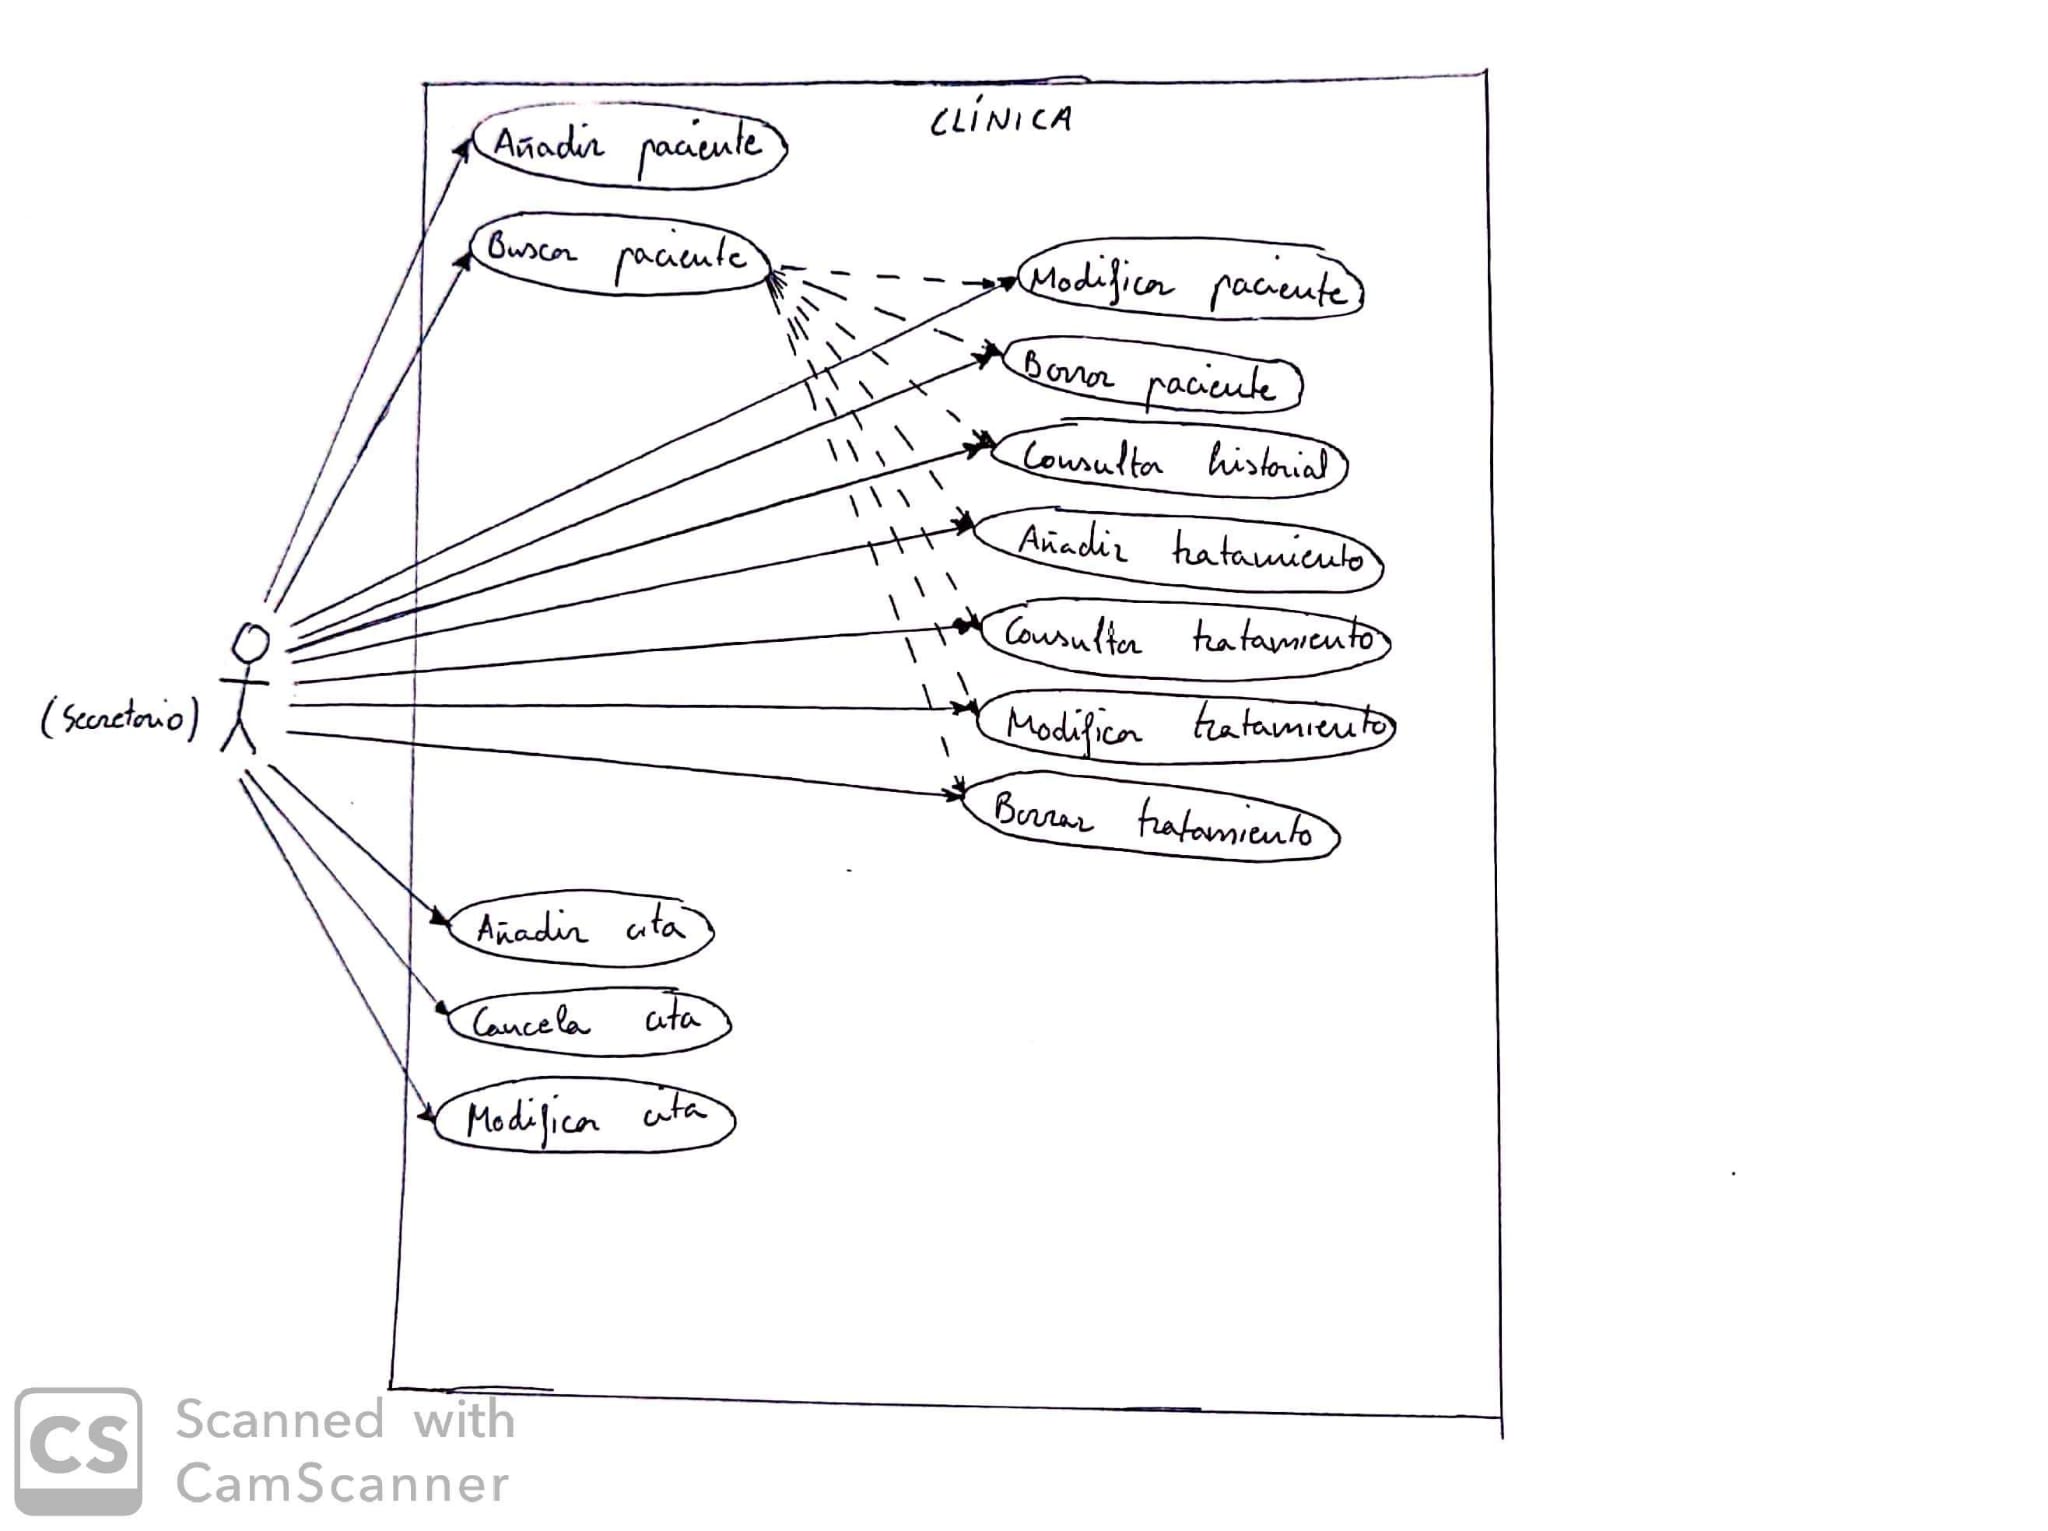 CLÍNICA
Añadir paciente
Buscar paciente
Modificar paciente
Borrar paciente
Consultar historial
Añadir tratamiento
Consultar tratamiento
(Secretario)
Modificar tratamiento
Borrar tratamiento
Añadir cita
Cancela cita
Modificar cita
CS
Scanned with
CamScanner